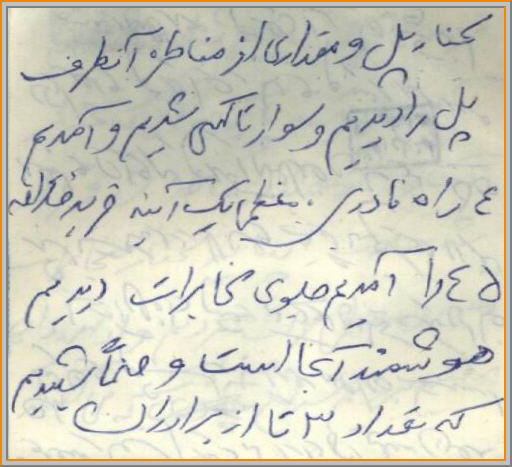 کنار پل و مقداری از مناطق آنطرف
پل را دیدیم و سوار تاکسی شدیم و آمدیم
٤ راه نادری. مغطمایک آئینه خرید
٤٥ را آمدیم جلوی مخابرات دیدیم
هوشمند آنجا است و ضمناً شنیدیم
که تعداد ٣ تا از برادران